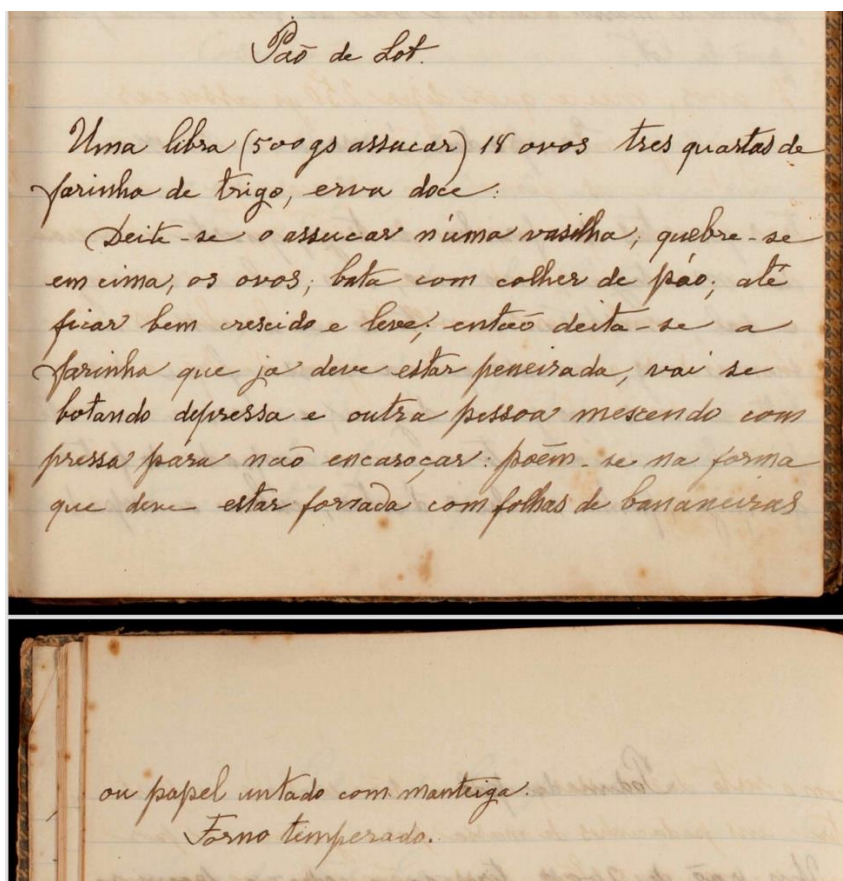 Pão de Lot.
Uma libra (500gs assucar) 18 ovos tres quartas de
farinha de trigo, erva doce:
Deite-se o assucar n'uma vasilha, quebre-se
em cima, os ovos; bata com colher de páo; até
ficar bem crescido e leve; então deita-se a
farinha que ja deve estar peneirada, vai se
botando depressa e outra pessoa mexendo com
pressa para não encaroçar: poēm-se na forma
que deve estar forrada com folhas de bananeiras
ou papel untado com manteiga.
Forno temperado.